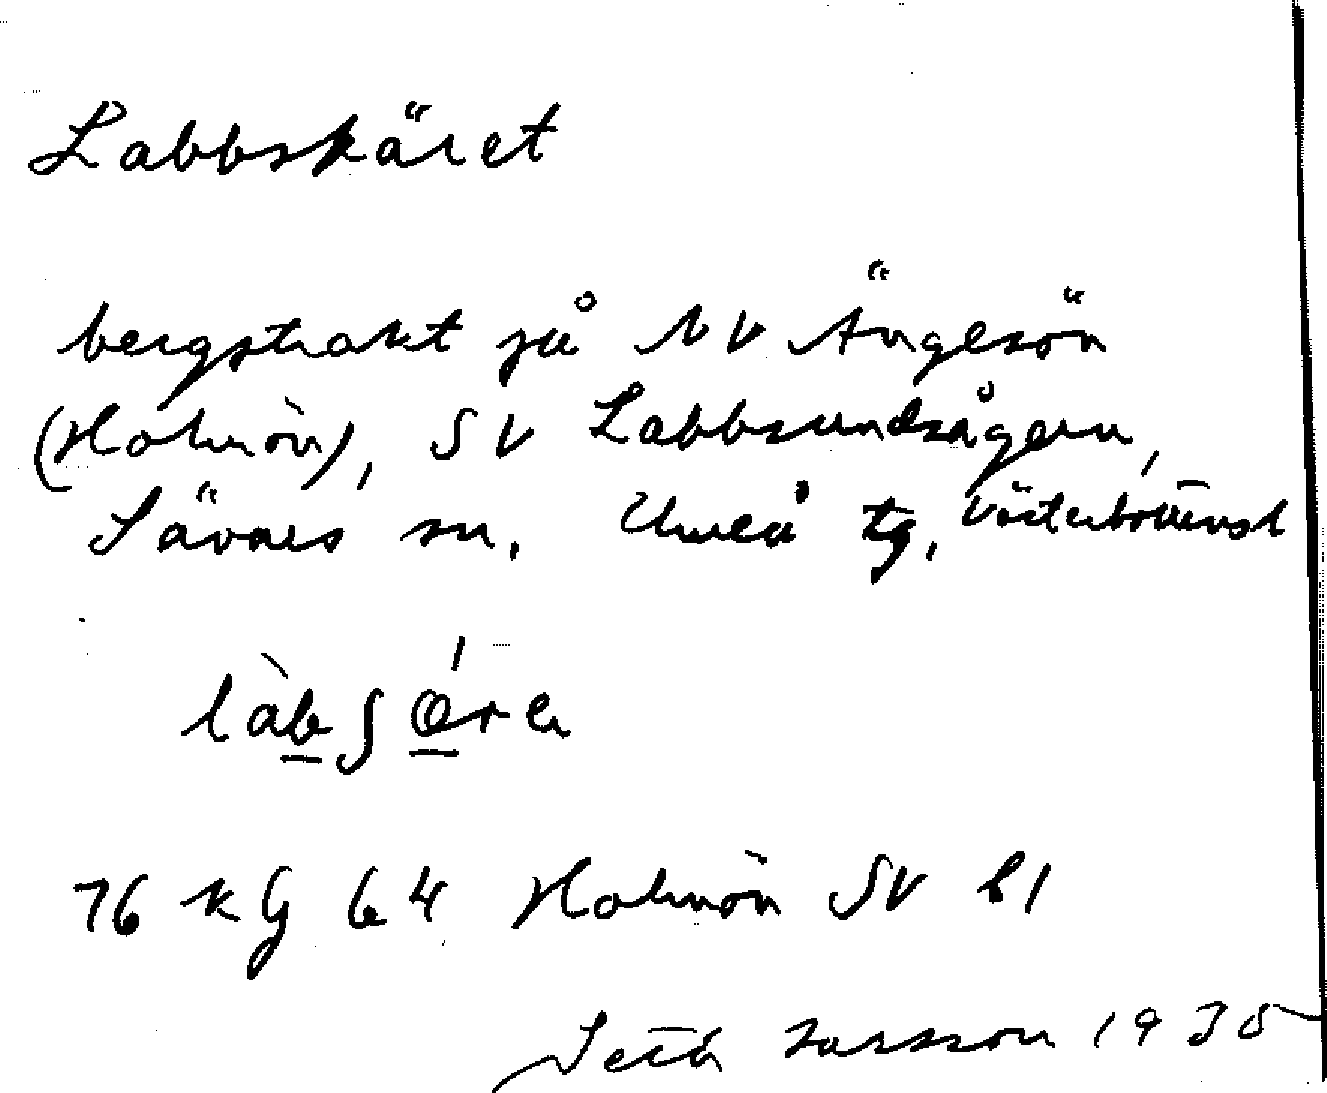 Labbskäret
bergstrakt på NV Ängesön
(Holmön), SV Labbsundsågern,
Sävars sn. Umeå tg, Västerbottensl
làbʃǿ̱ra
76 kg 64 Holmön SV bl
Seth Larsson 1935